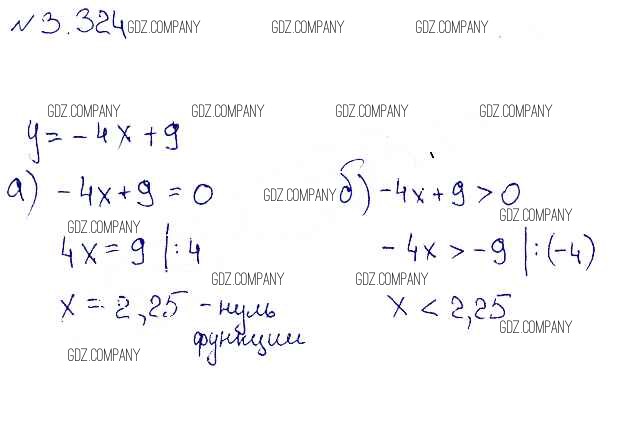 №3.324 GDZ.COMPANY GDZ.COMPANY GDZ.COMPANY
GDZ.COMPANY GDZ.COMPANY GDZ.COMPANY GDZ.COMPANY
y = -4x + 9
а) -4x + 9 = 0
GDZ.COMPANY
4x = 9 |:4
GDZ.COMPANY
x = 2,25 - нуль
функции
GDZ.COMPANY
б) -4x + 9 > 0
GDZ.COMPANY
GDZ.COMPANY
-4x > -9 |:(-4)
GDZ.COMPANY
x < 2,25
GDZ.COMPANY